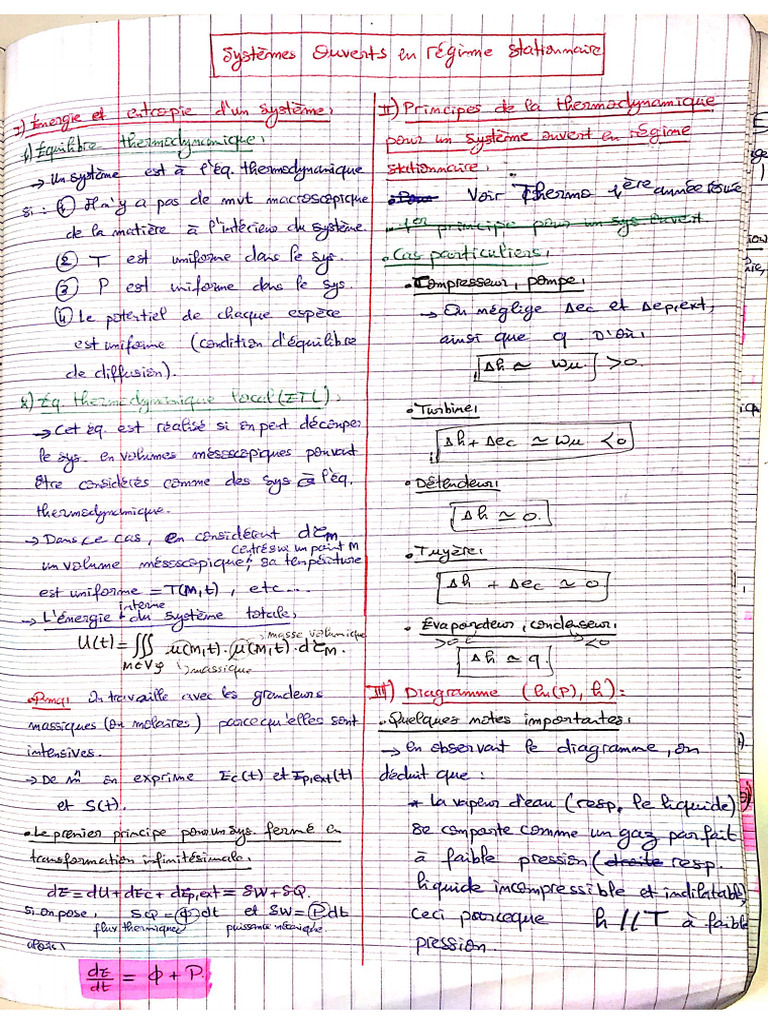 Systèmes ouverts en régime stationnaire
I) Énergie et entropie d'un système:
1) Équilibre thermodynamique:
→ Un système est à l'éq. thermodynamique
si: ① Il n'y a pas de mvt macroscopique
de la matière à l'intérieur du système.
② T est uniforme dans le sys.
③ P est uniforme dans le sys.
④ Le potentiel de chaque espèce
est uniforme (condition d'équilibre
de diffusion).
2) Éq thermodynamique local (ETL):
→ Cet éq. est réalisé si on peut découper
le sys. en volumes mésoscopiques pouvant
être considérés comme des sys à l'éq.
thermodynamique.
→ Dans ce cas, en considérant dτM
centré sur un point M
un volume mésoscopique, sa température
est uniforme = T(M,t), etc...
→ L'énergie interne du système totale,
U(t) = ∭M∈Vg u(M,t). μ(M,t). dτM.
masse volumique
massique
• Rmq: On travaille avec les grandeurs
massiques (ou molaires) parce qu'elles sont
intensives.
→ De m̂ on exprime Ec(t) et Ep,ext(t)
et S(t).
• Le premier principe pour un sys. fermé en
transformation infinitésimale:
dE = dU + dEc + dEp,ext = δW + δQ.
Si on pose, δQ = ϕ dt et δW = P dt
flux thermique puissance mécanique
alors:
dE/dt = ϕ + P.
II) Principes de la thermodynamique
pour un système ouvert en régime
stationnaire:
Voir Thermo 1ère année résumé
1er principe pour un sys ouvert
• Cas particuliers:
• Compresseur, pompe:
→ On néglige Δec et Δep,ext,
ainsi que q D'où:
Δh ≃ wu. >0.
• Turbine:
Δh + Δec ≃ wu <0
• Détendeur:
Δh ≃ 0.
• Tuyère:
Δh + Δec ≃ 0
• Évaporateur, condenseur:
>0 <0
Δh ≃ q.
III) Diagramme (ln(P), h):
• Quelques notes importantes:
→ en observant le diagramme, on
déduit que:
* la vapeur d'eau (resp. le liquide)
se comporte comme un gaz parfait
à faible pression (droite resp.
liquide incompressible et indilatable)
ceci parceque h // T à faible
pression.